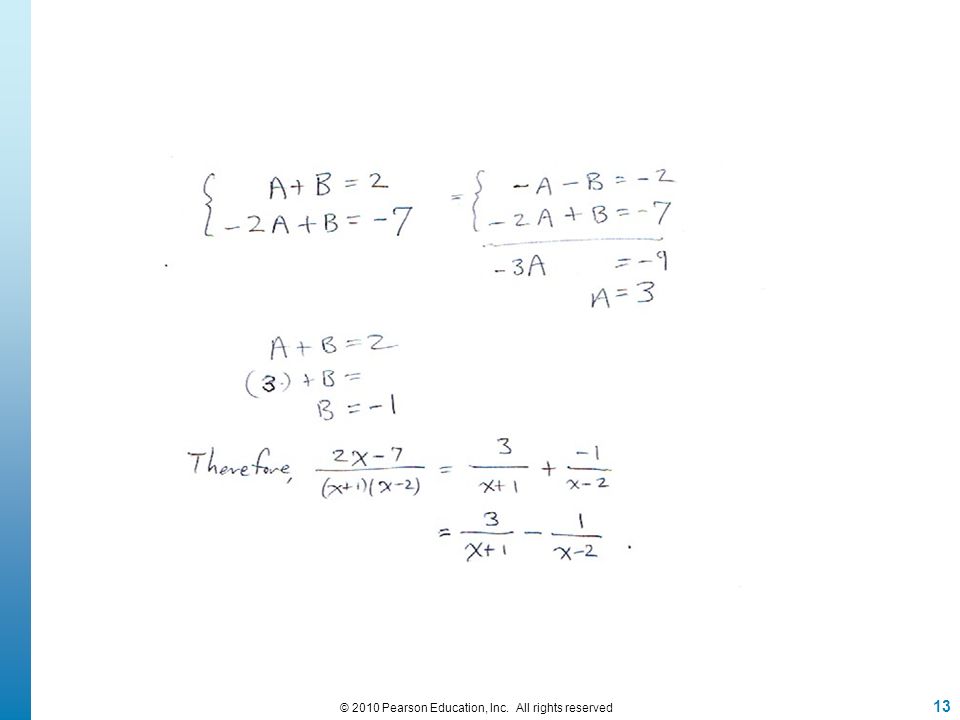 A + B = 2
-2A + B = -7
= -A - B = -2
-2A + B = -7
-3A = -9
A = 3
A + B = 2
(3) + B =
B = -1
Therefore, 2x-7/(x+1)(x-2) = 3/x+1 + -1/x-2
= 3/x+1 - 1/x-2 .
© 2010 Pearson Education, Inc. All rights reserved
13